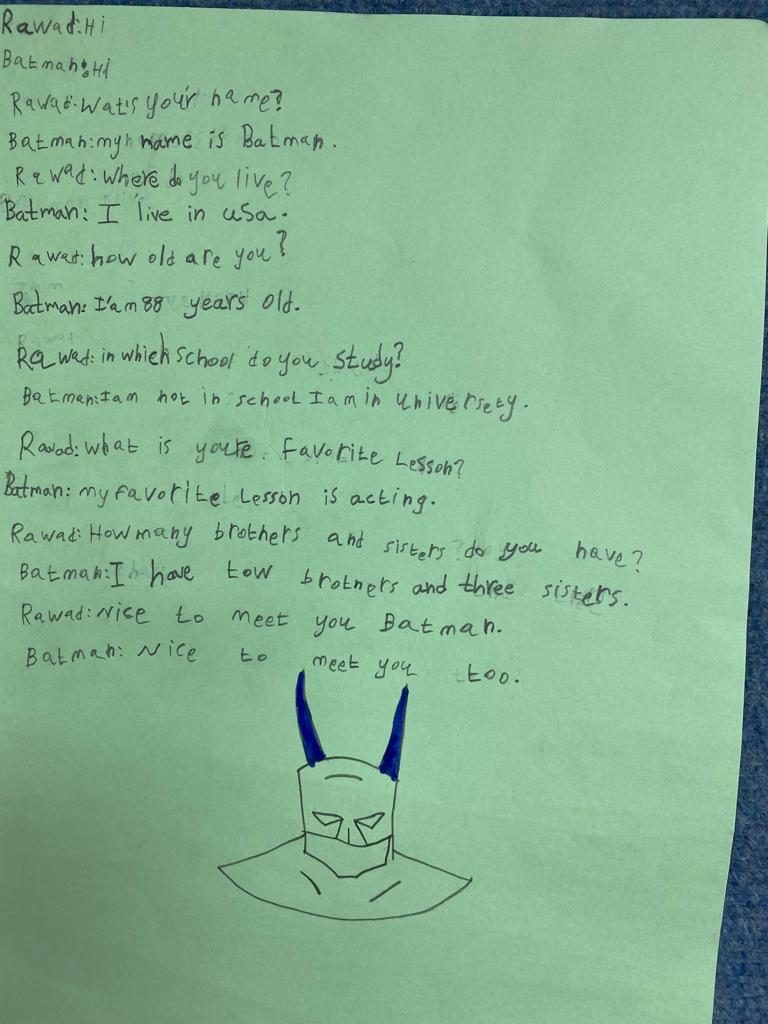 Rawad: Hi
Batman: Hi
Rawad: wat's your name?
Batman: my name is Batman.
Rawad: where do you live?
Batman: I live in usa.
Rawad: how old are you?
Batman: I'am 88 years old.
Rawad: in which school do you study?
Batman: I am not in school I am in universety.
Rawad: what is youre favorite Lesson?
Batman: my favorite Lesson is acting.
Rawad: How many brothers and sisters do you have?
Batman: I have tow brothers and three sisters.
Rawad: Nice to meet you Batman.
Batman: Nice to meet you too.